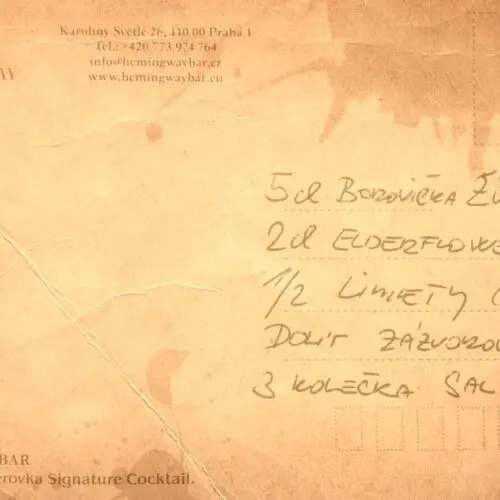 Karoliny Světlé 26, 110 00 Praha 1
Tel.: +420 773 974 764
info@hemingwaybar.cz
www.hemingwaybar.eu
5cl BOROVIČKA
2cl ELDERFLOWE
1/2 LIMETY
DOLÍT ZÁZVOROV
3 KOLEČKA SAL
BAR
erovka Signature Cocktail.